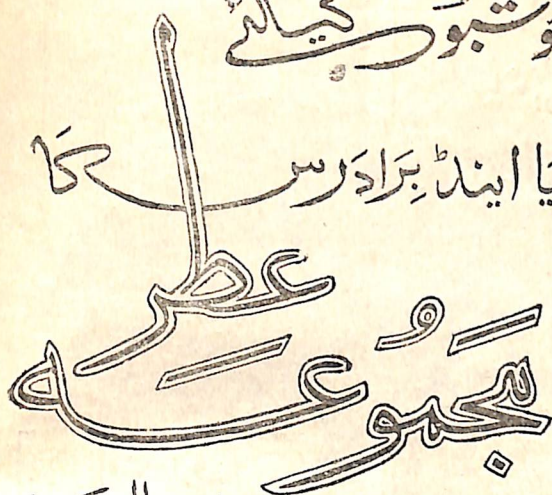 خوشبو کیلئے
یا اینڈ برادرس کا
عطر
مجموعہ